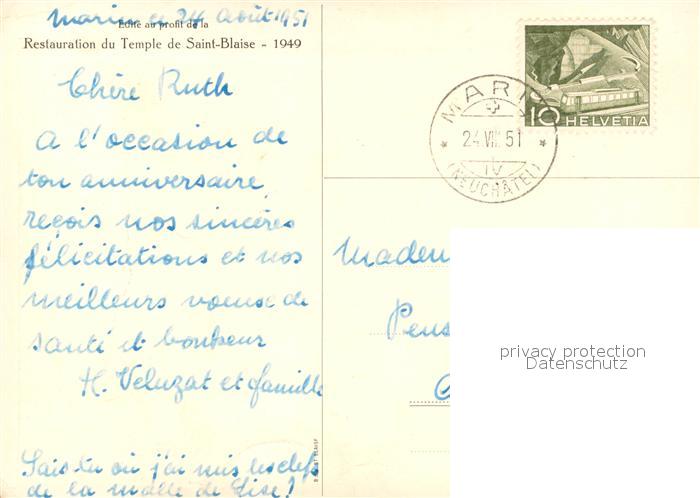 Marin le 24 Août 1951
Edité au profit de la
Restauration du Temple de Saint-Blaise - 1949
Chère Ruth
A l'occasion de
ton anniversaire
reçois nos sincères
félicitations et nos
meilleurs voeuse de
santé et bonheur
H. Veluzat et famille
Sais-tu où j'ai mis les clefs
de la malle de Lise!
MARIN
24.VIII.51
IV
(NEUCHÂTEL)
10 HELVETIA
Madem
Pens
privacy protection
Datenschutz